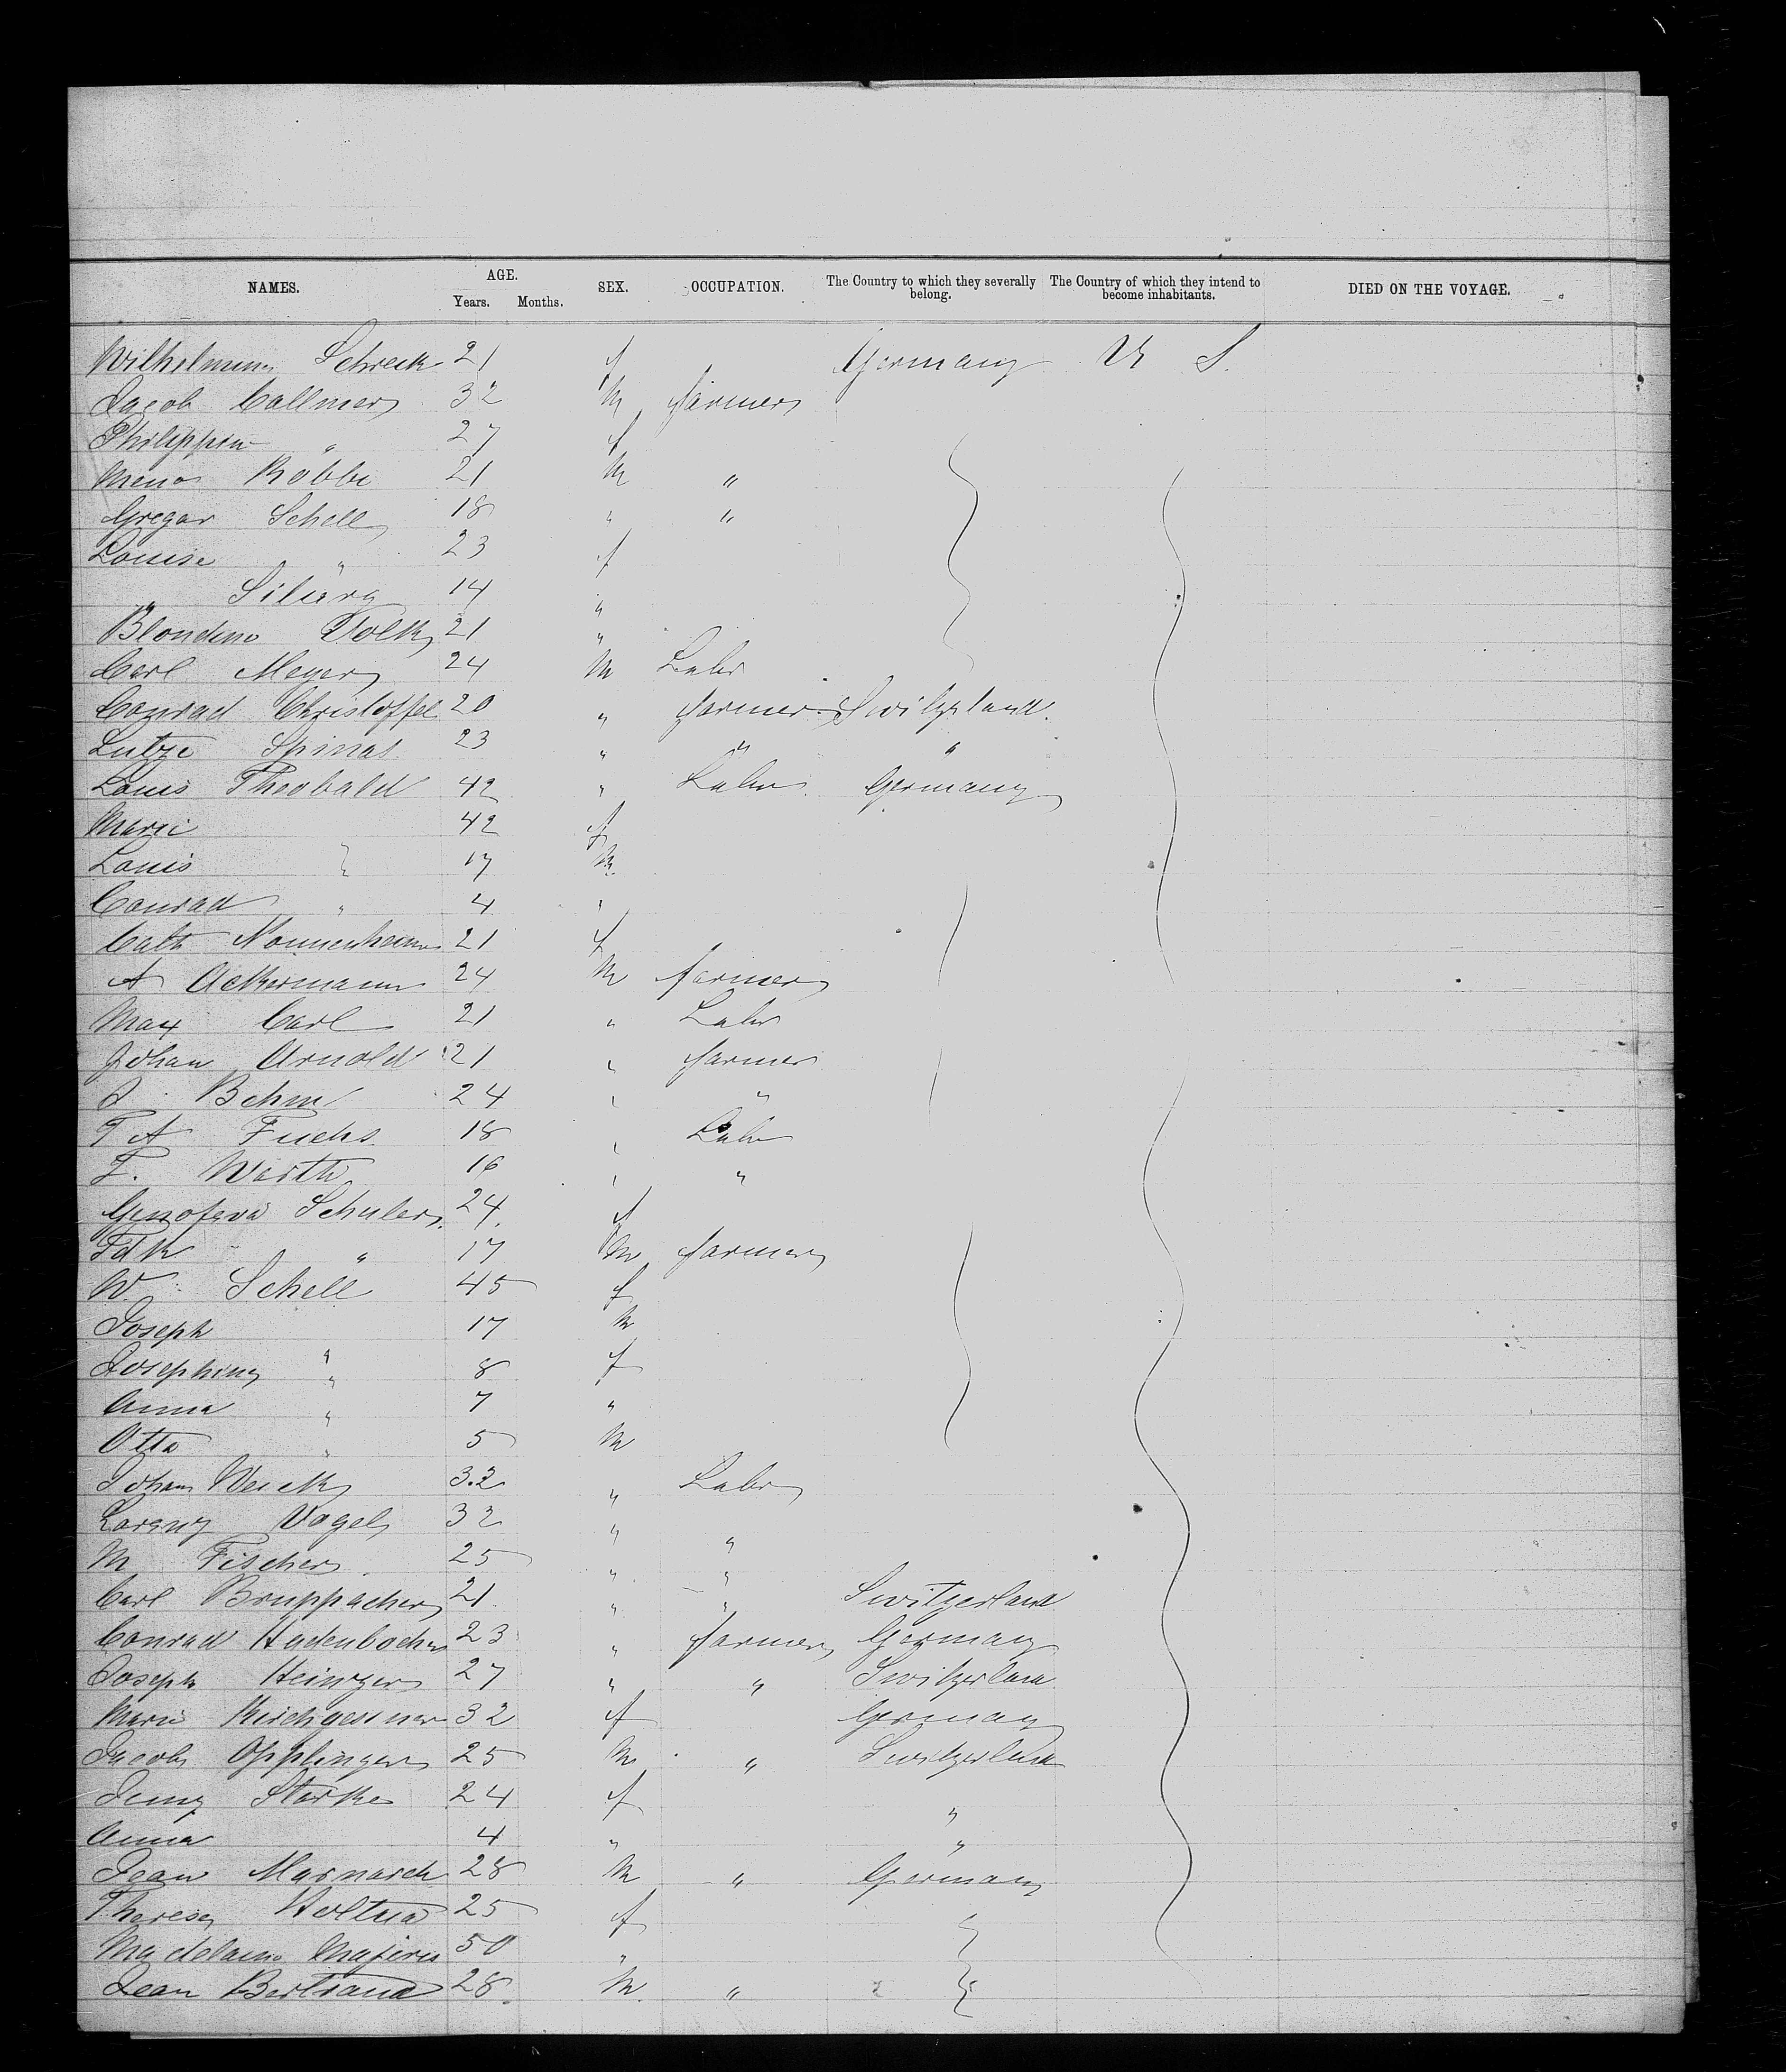 NAMES. AGE. Years. Months. SEX. OCCUPATION. The Country to which they severally belong. The Country of which they intend to become inhabitants. DIED ON THE VOYAGE.
Schreck 21 f Germany U S.
Jacob Collmer 32 M farmer
Philippin " 27 f
Robbi 21 M "
Gregor Schell 18 " "
Louise " 23 f
" 14 "
21 "
Carl Meyer 24 M Labr
Conrad Christoffel 20 " farmer Switzerland
Spinat 23 " " "
Louis Theobald 42 " Labr Germany
Marie 42 f
Louis 17 M
Conrad " 4 "
Cath 21 f
A Ackermann 24 M farmer
Max Carl 21 " Labr
Johan Arnold 21 " farmer
J Behm 24 " "
T A Fuchs 18 " Labr
F. Wirth 16 " "
Genofeva Schuler 24 f
Fdk " 17 M farmer
W. Schell 45 f
Joseph " 17 M
Josephine " 8 f
Anna " 7 "
Otto " 5 M
Johan Weick 32 " Labr
Lorenz Vogel 32 " "
M Fischer 25 " "
Carl Bruppacher 21 " " Switzerland
Conrad 23 " farmer Germany
Joseph Heinzer 27 " " Switzerland
Marie Kirchgessner 32 f Germany
Jacob Opplinger 25 M " Switzerland
Jenny Starke 24 f "
Anna 4 " "
Jean 28 M " Germany
Theresa 25 f
50 "
Jean Bertrand 28 M "